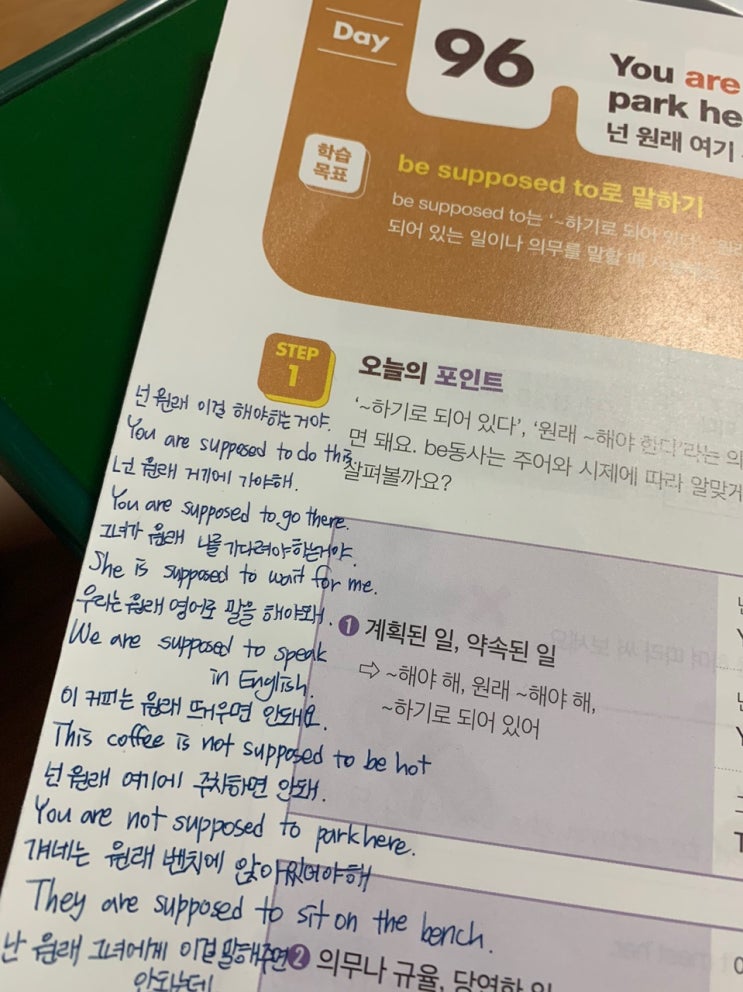 Day
96
You are
park he
넌 원래 여기
학습
목표
be supposed to로 말하기
be supposed to는 '~하기로 되어 있다', '원래
되어 있는 일이나 의무를 말할 때
STEP
1
오늘의 포인트
'~하기로 되어 있다', '원래 ~해야 한다'라는 의
면 돼요. be동사는 주어와 시제에 따라 알맞게
살펴볼까요?
넌 원래 이걸 해야하는거야.
You are supposed to do this
넌 원래 거기에 가야해.
You are supposed to go there.
그녀가 원래 나를 기다려야하는거야.
She is supposed to wait for me.
우리는 원래 영어로 말을 해야돼.
We are supposed to speak
in English.
이 커피는 원래 뜨거우면 안돼요.
This coffee is not supposed to be hot
넌 원래 여기에 주차하면 안돼.
You are not supposed to park here.
걔네는 원래 벤치에 앉아있어야해
They are supposed to sit on the bench.
난 원래 그녀에게 이걸 말해주면
안되는데
1 계획된 일, 약속된 일
⇨ ~해야 해, 원래 ~해야 해,
~하기로 되어 있어
2 의무나 규율, 당연한 일